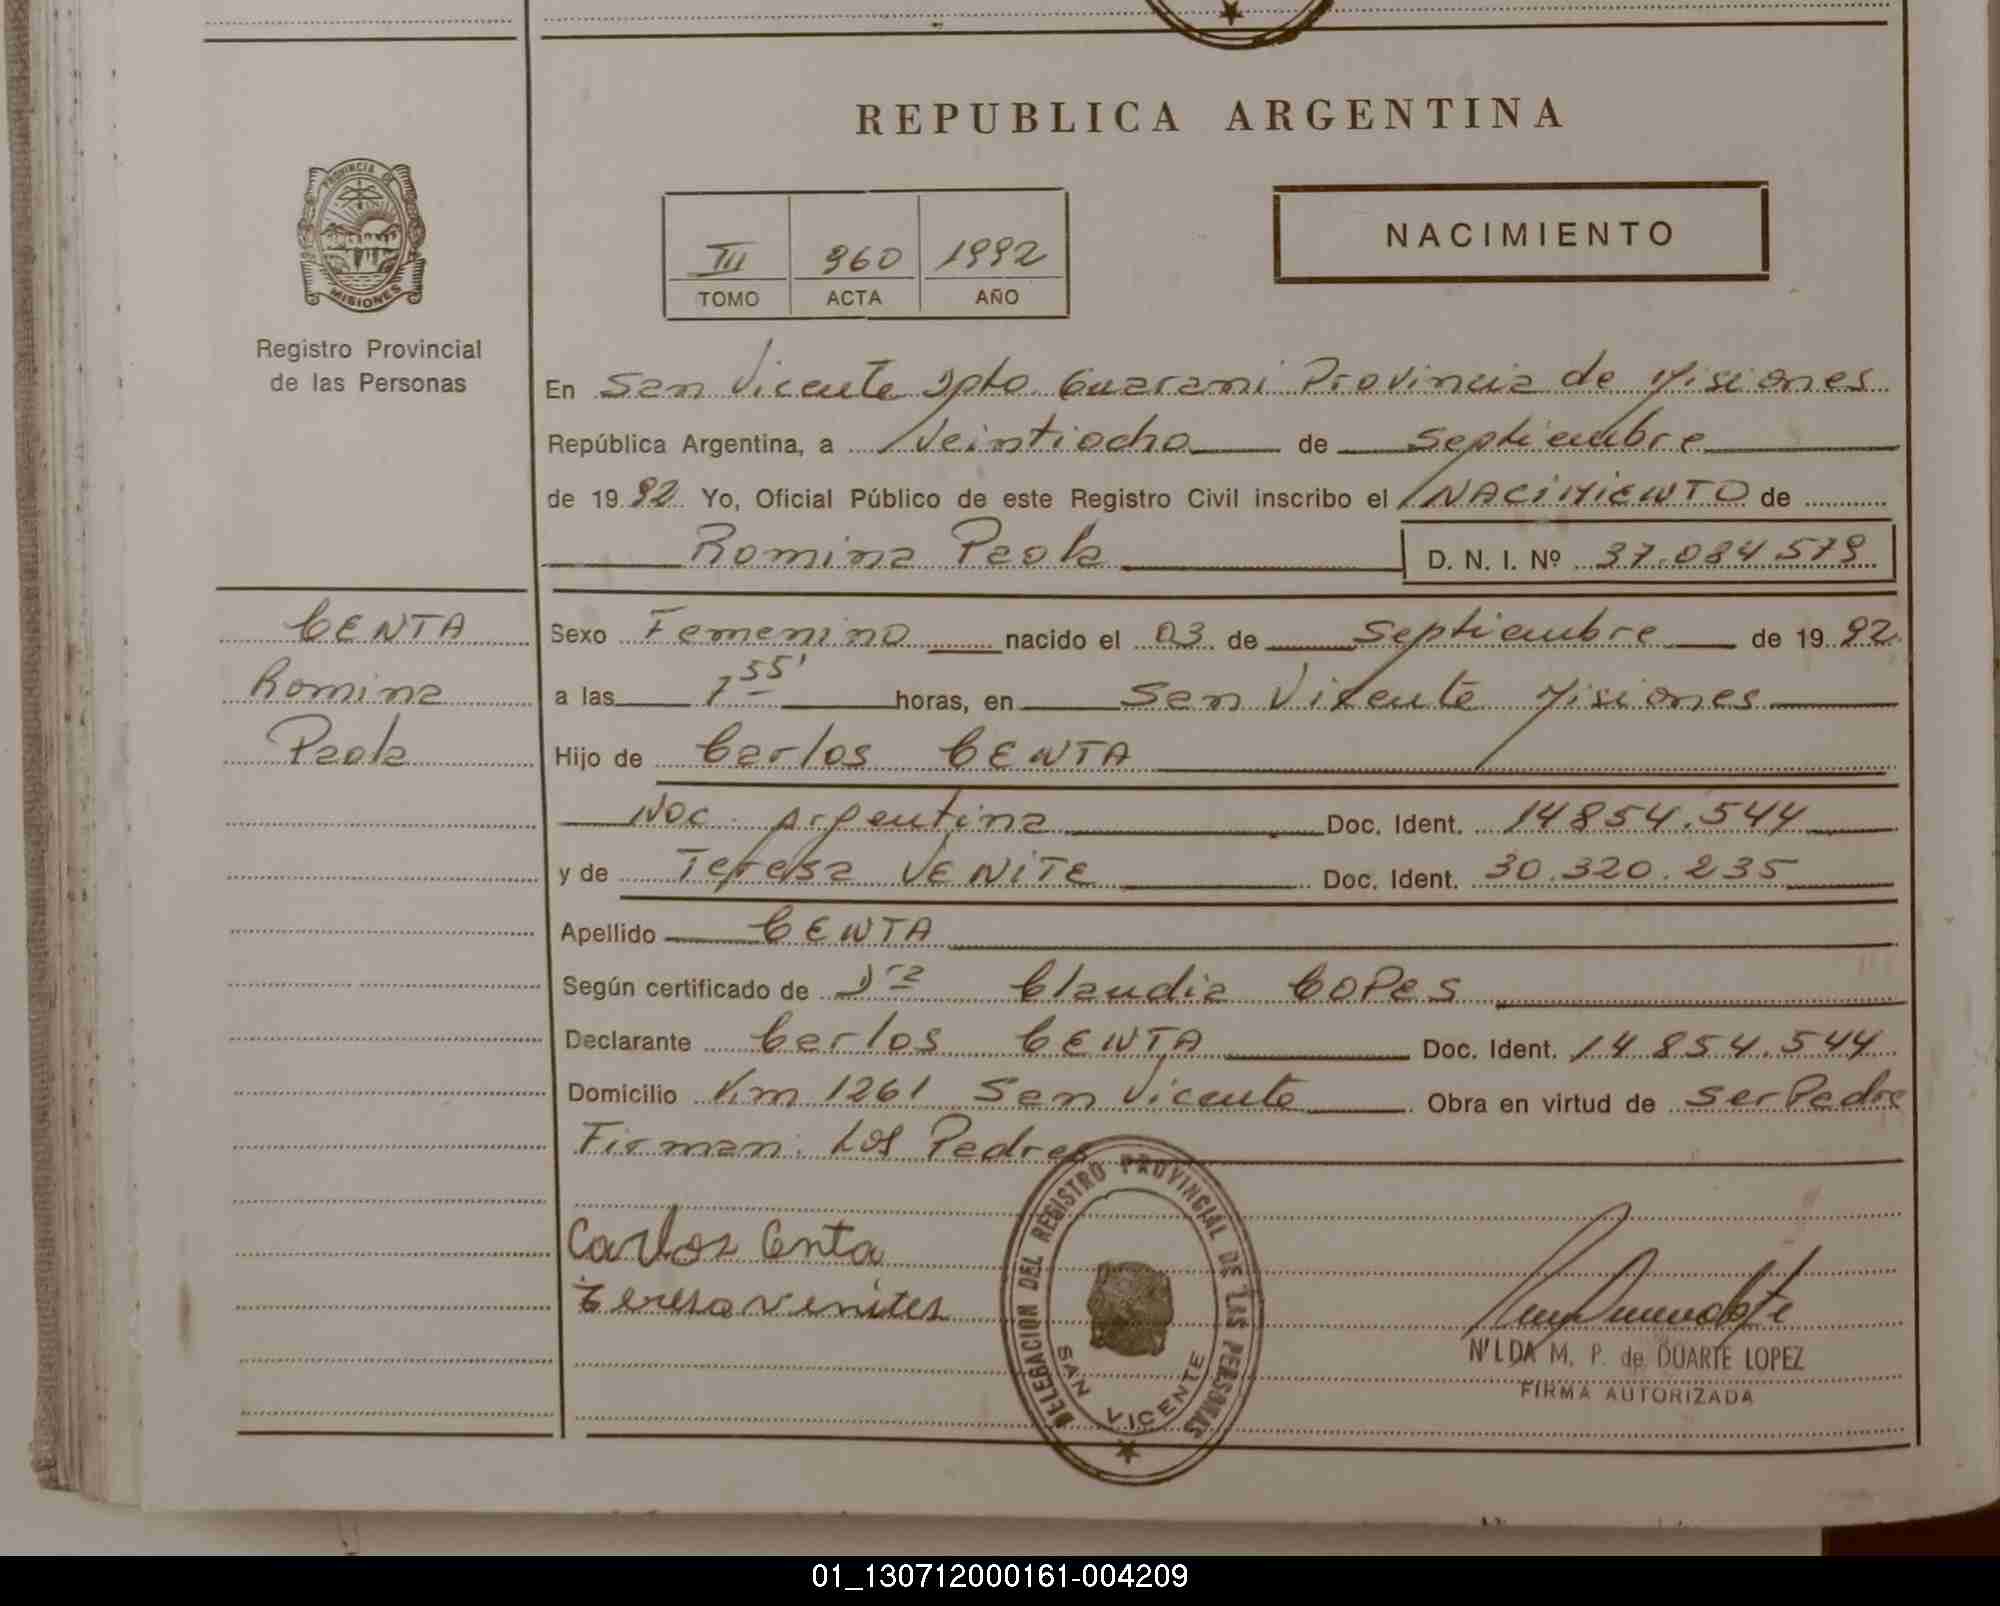 REPUBLICA ARGENTINA
PROVINCIA DE
MISIONES
Registro Provincial
de las Personas
III 960 1992
TOMO ACTA AÑO
NACIMIENTO
En San Vicente Dpto. Guarani Provincia de Misiones
República Argentina, a Veintiocho de Septiembre
de 1992 Yo, Oficial Público de este Registro Civil inscribo el NACIMIENTO de
Romina Paola D. N. I. Nº 37.084.579
CENTA
Romina
Paola
Sexo Femenino nacido el 03 de Septiembre de 1992
a las 7 55' horas, en San Vicente Misiones
Hijo de Carlos CENTA
Nac. Argentina Doc. Ident. 14854.544
y de Teresa VENITE Doc. Ident. 30.320.235
Apellido CENTA
Según certificado de Dra Claudia COPES
Declarante Carlos CENTA Doc. Ident. 14.854.544
Domicilio Km 1261 San Vicente Obra en virtud de ser Padre
Firman: Los Padres
Carlos Centa
Teresa venites
DELEGACION DEL REGISTRO PROVINCIAL DE LAS PERSONAS
SAN VICENTE
NILDA M. P. de DUARTE LOPEZ
FIRMA AUTORIZADA
01_130712000161-004209